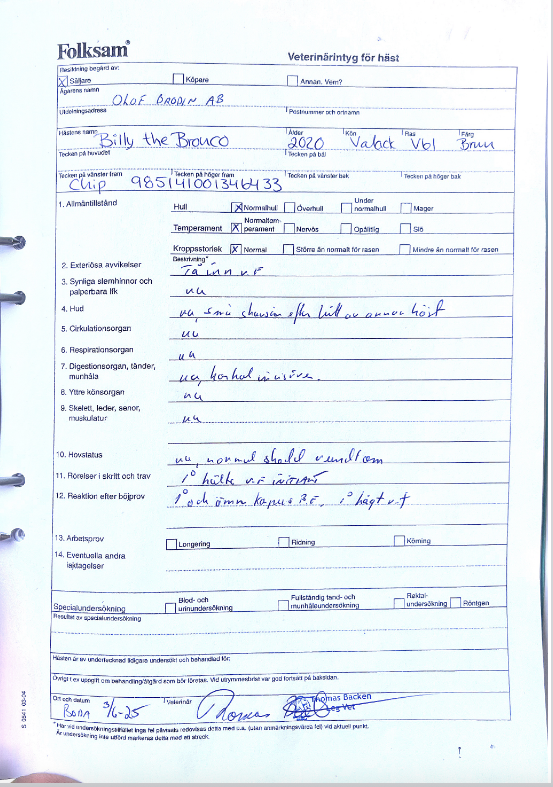 Folksam
Veterinärintyg för häst
Besiktning begärd av:
X Säljare Köpare Annan. Vem?
Ägarens namn
OLOF BRODIN AB
Utdelningsadress Postnummer och ortnamn
Hästens namn Ålder Kön Ras Färg
Billy the Bronco 2020 Valack Vbl Brun
Tecken på huvudet Tecken på bål
Tecken på vänster fram Tecken på höger fram Tecken på vänster bak Tecken på höger bak
Chip 985141001346433
1. Allmäntillstånd Hull X Normalhull Överhull Under normalhull Mager
Temperament X Normaltemperament Nervös Opålitlig Slö
Kroppsstorlek X Normal Större än normalt för rasen Mindre än normalt för rasen
Beskrivning*
2. Exteriösa avvikelser Tå inn v.F
3. Synliga slemhinnor och palperbara lfk ua
4. Hud ua, små efter bitt av annan häst
5. Cirkulationsorgan ua
6. Respirationsorgan ua
7. Digestionsorgan, tänder, munhåla ua,
8. Yttre könsorgan ua
9. Skelett, leder, senor, muskulatur ua
10. Hovstatus ua, normal skodd runtom
11. Rörelser i skritt och trav 1° hälta v.F initialt
12. Reaktion efter böjprov 1° och ömn kapus, 1° högt v.f
13. Arbetsprov Longering Ridning Körning
14. Eventuella andra iakttagelser
Specialundersökning Blod- och urinundersökning Fullständig tand- och munhåleundersökning Rektalundersökning Röntgen
Resultat av specialundersökning
Hästen är av undertecknad tidigare undersökt och behandlad för:
Övrigt t ex uppgift om behandling/åtgärd som bör företas. Vid utrymmesbrist var god fortsätt på baksidan.
Ort och datum Veterinär
3/6-25 Thomas Thomas Backen
Leg Vet
* Har vid undersökningstillfället inga fel påvisats redovisas detta med u.a. (utan anmärkningsvärda fel) vid aktuell punkt.
Är undersökning inte utförd markeras detta med ett streck.
S 0541 03-04